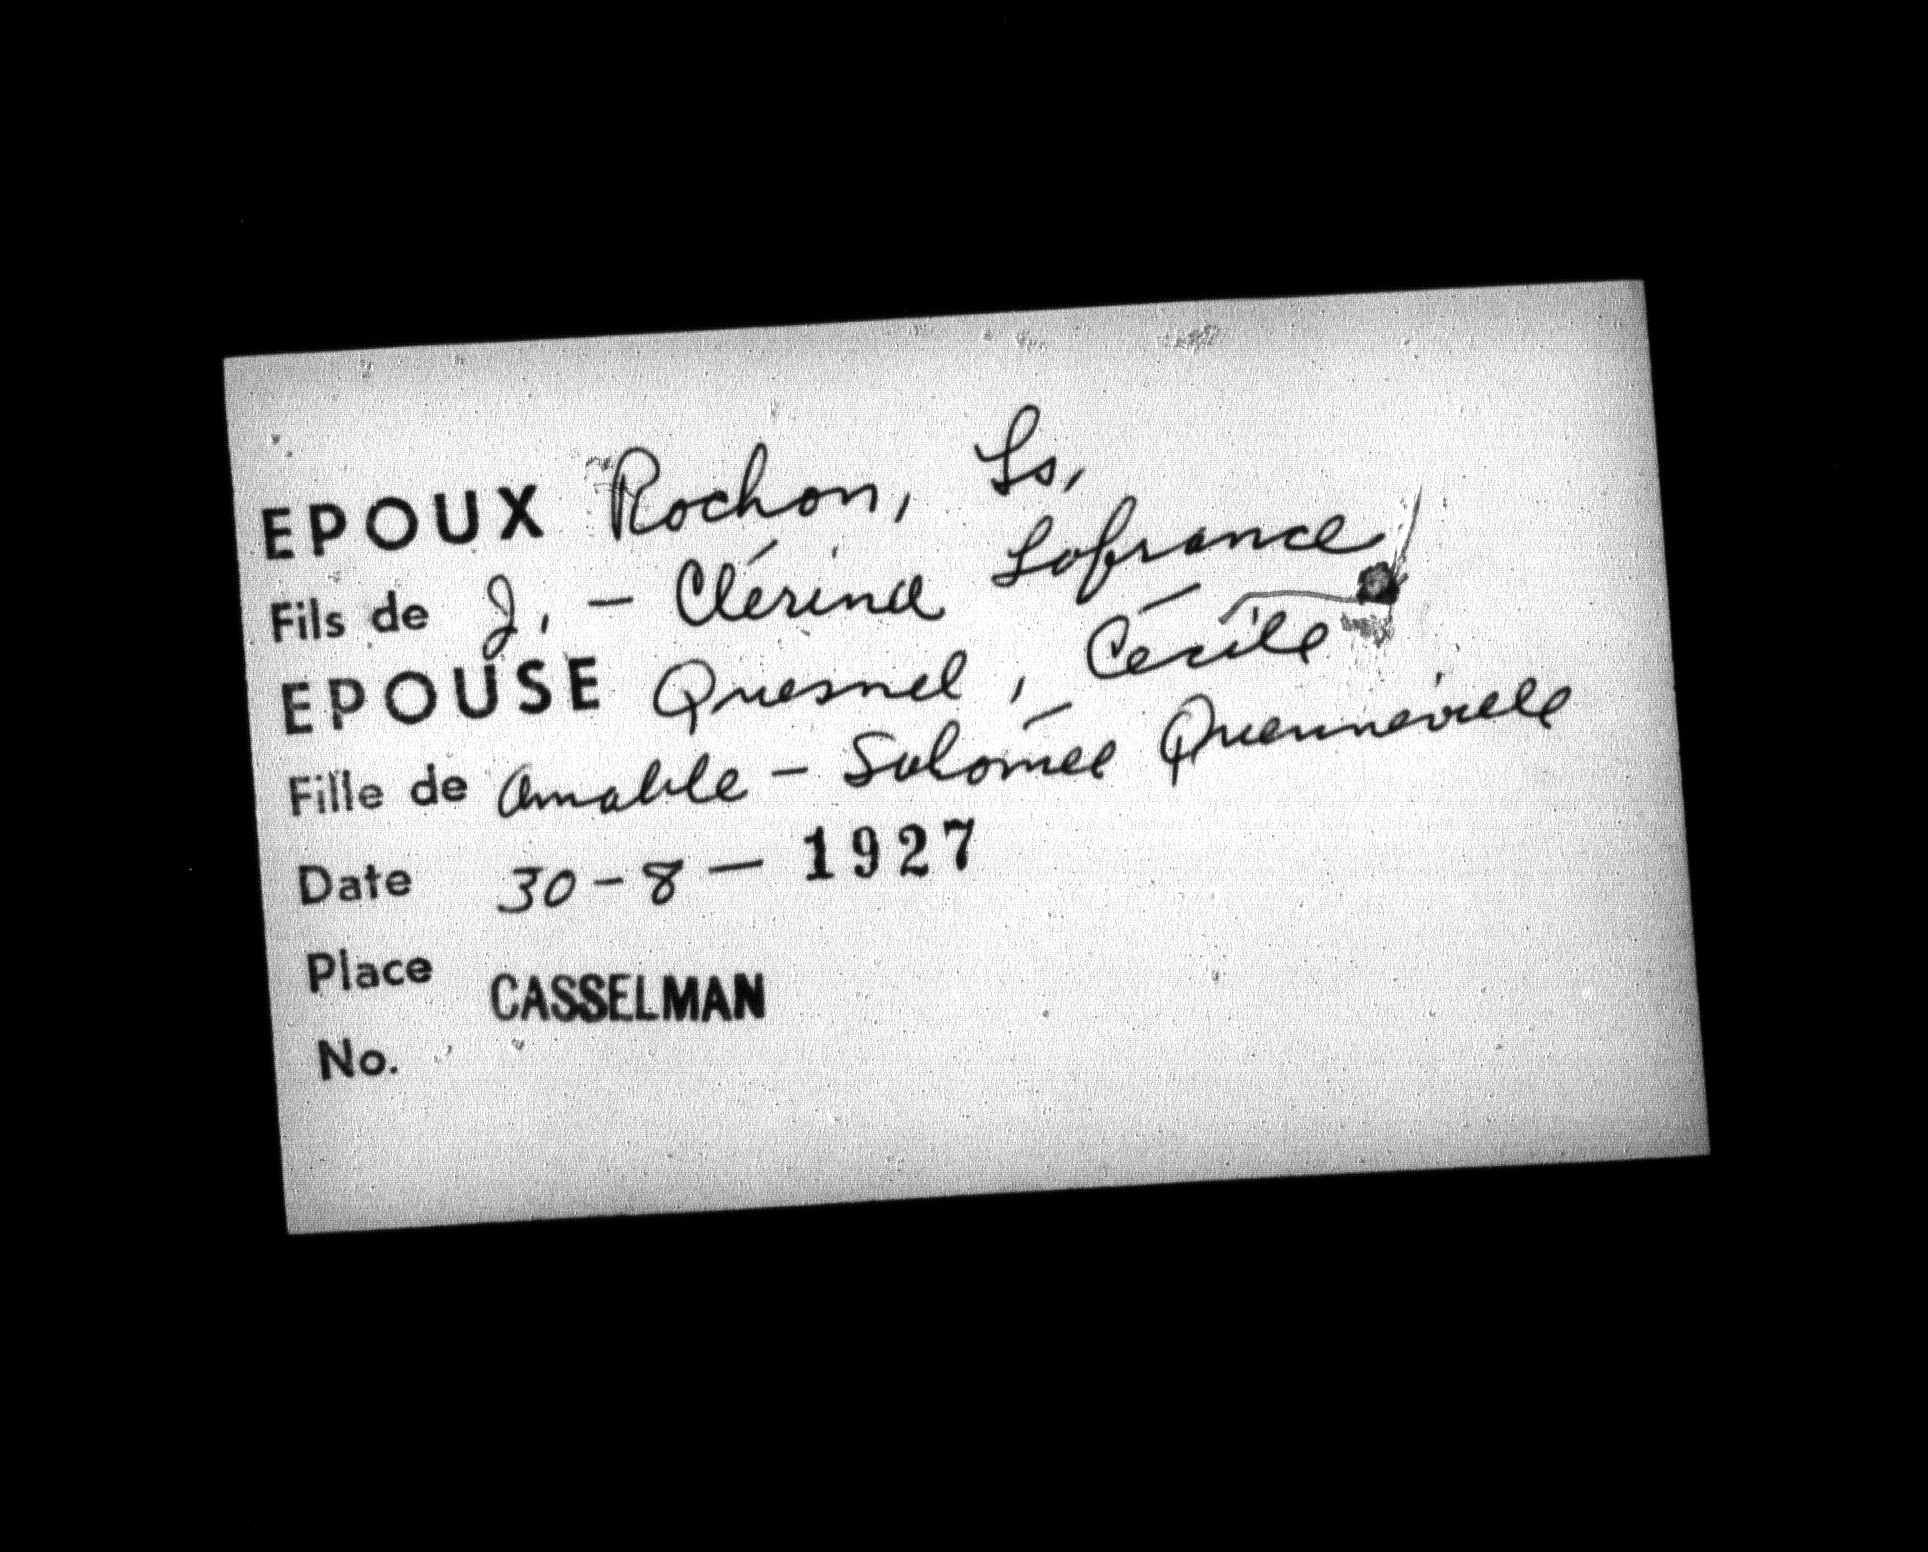 EPOUX Rochon, Ls,
Fils de J. - Clérina Lafrance
EPOUSE Quesnel, Cécile
Fille de Amable - Salomée Quenneville
Date 30-8-1927
Place CASSELMAN
No.